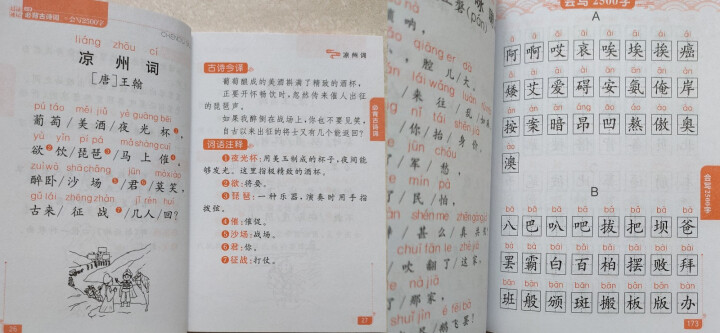 必背古诗词 会写2500字
liáng zhōu cí
凉 州 词
[唐]王翰
pú táo měi jiǔ yè guāng bēi
葡萄/美酒/夜光杯❶,
yù yǐn pí pá mǎ shàng cuī
欲❷饮/琵琶❸/马上催❹。
zuì wò shā chǎng jūn mò xiào
醉卧/沙场❺/君❻莫笑,
gǔ lái zhēng zhàn jǐ rén huí
古来/征战❼/几人/回?
26
凉州词
古诗今译
葡萄酿成的美酒斟满了精致的酒杯,
正要开怀畅饮时,忽然传来催人出征
的琵琶声。
如果我醉倒在战场上,你也不要见笑,
自古以来出征的将士又有几个能返回?
词语注释
❶夜光杯:用美玉制成的杯子,夜间能
够发光。这里指极精致的酒杯。
❷欲:将要。
❸琵琶:一种乐器,演奏时用手指
拨弦。
❹催:催促。
❺沙场:战场。
❻君:你。
❼征战:打仗。
必背古诗词
27
咏
磐(pán)
呐,
qiāng er dà
腔/儿/大。
lái wǎng luàn
来/往/乱
nǐ tái shēn jià
你/抬/身/价。
jūn chóu
军/愁,
mín pà
民/怕,
shén me zhēn
甚么/真
chuī fān le zhè
吹翻了/这家,
le nà jiā
了/那家,
é fēi bà
鹅飞罢!
会写2500字
A
阿 啊 哎 哀 唉 埃 挨 癌
矮 艾 爱 碍 安 氨 俺 岸
按 案 暗 昂 凹 熬 傲 奥
澳
B
八 巴 叭 吧 拔 把 坝 爸
罢 霸 白 百 柏 摆 败 拜
班 般 颁 斑 搬 板 版 办
会写2500字
173